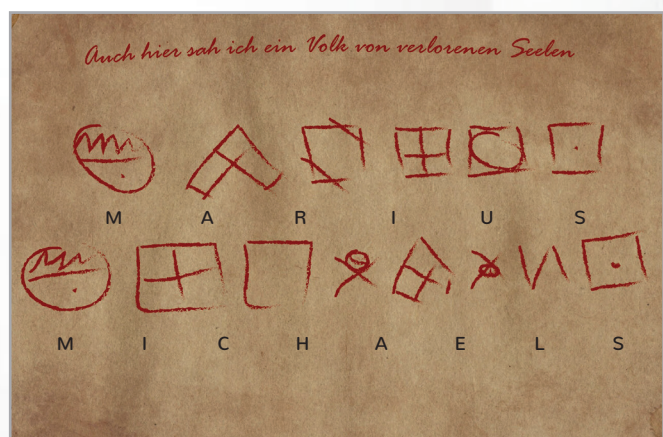 Auch hier sah ich ein Volk von verlorenen Seelen
M A R I U S
M I C H A E L S